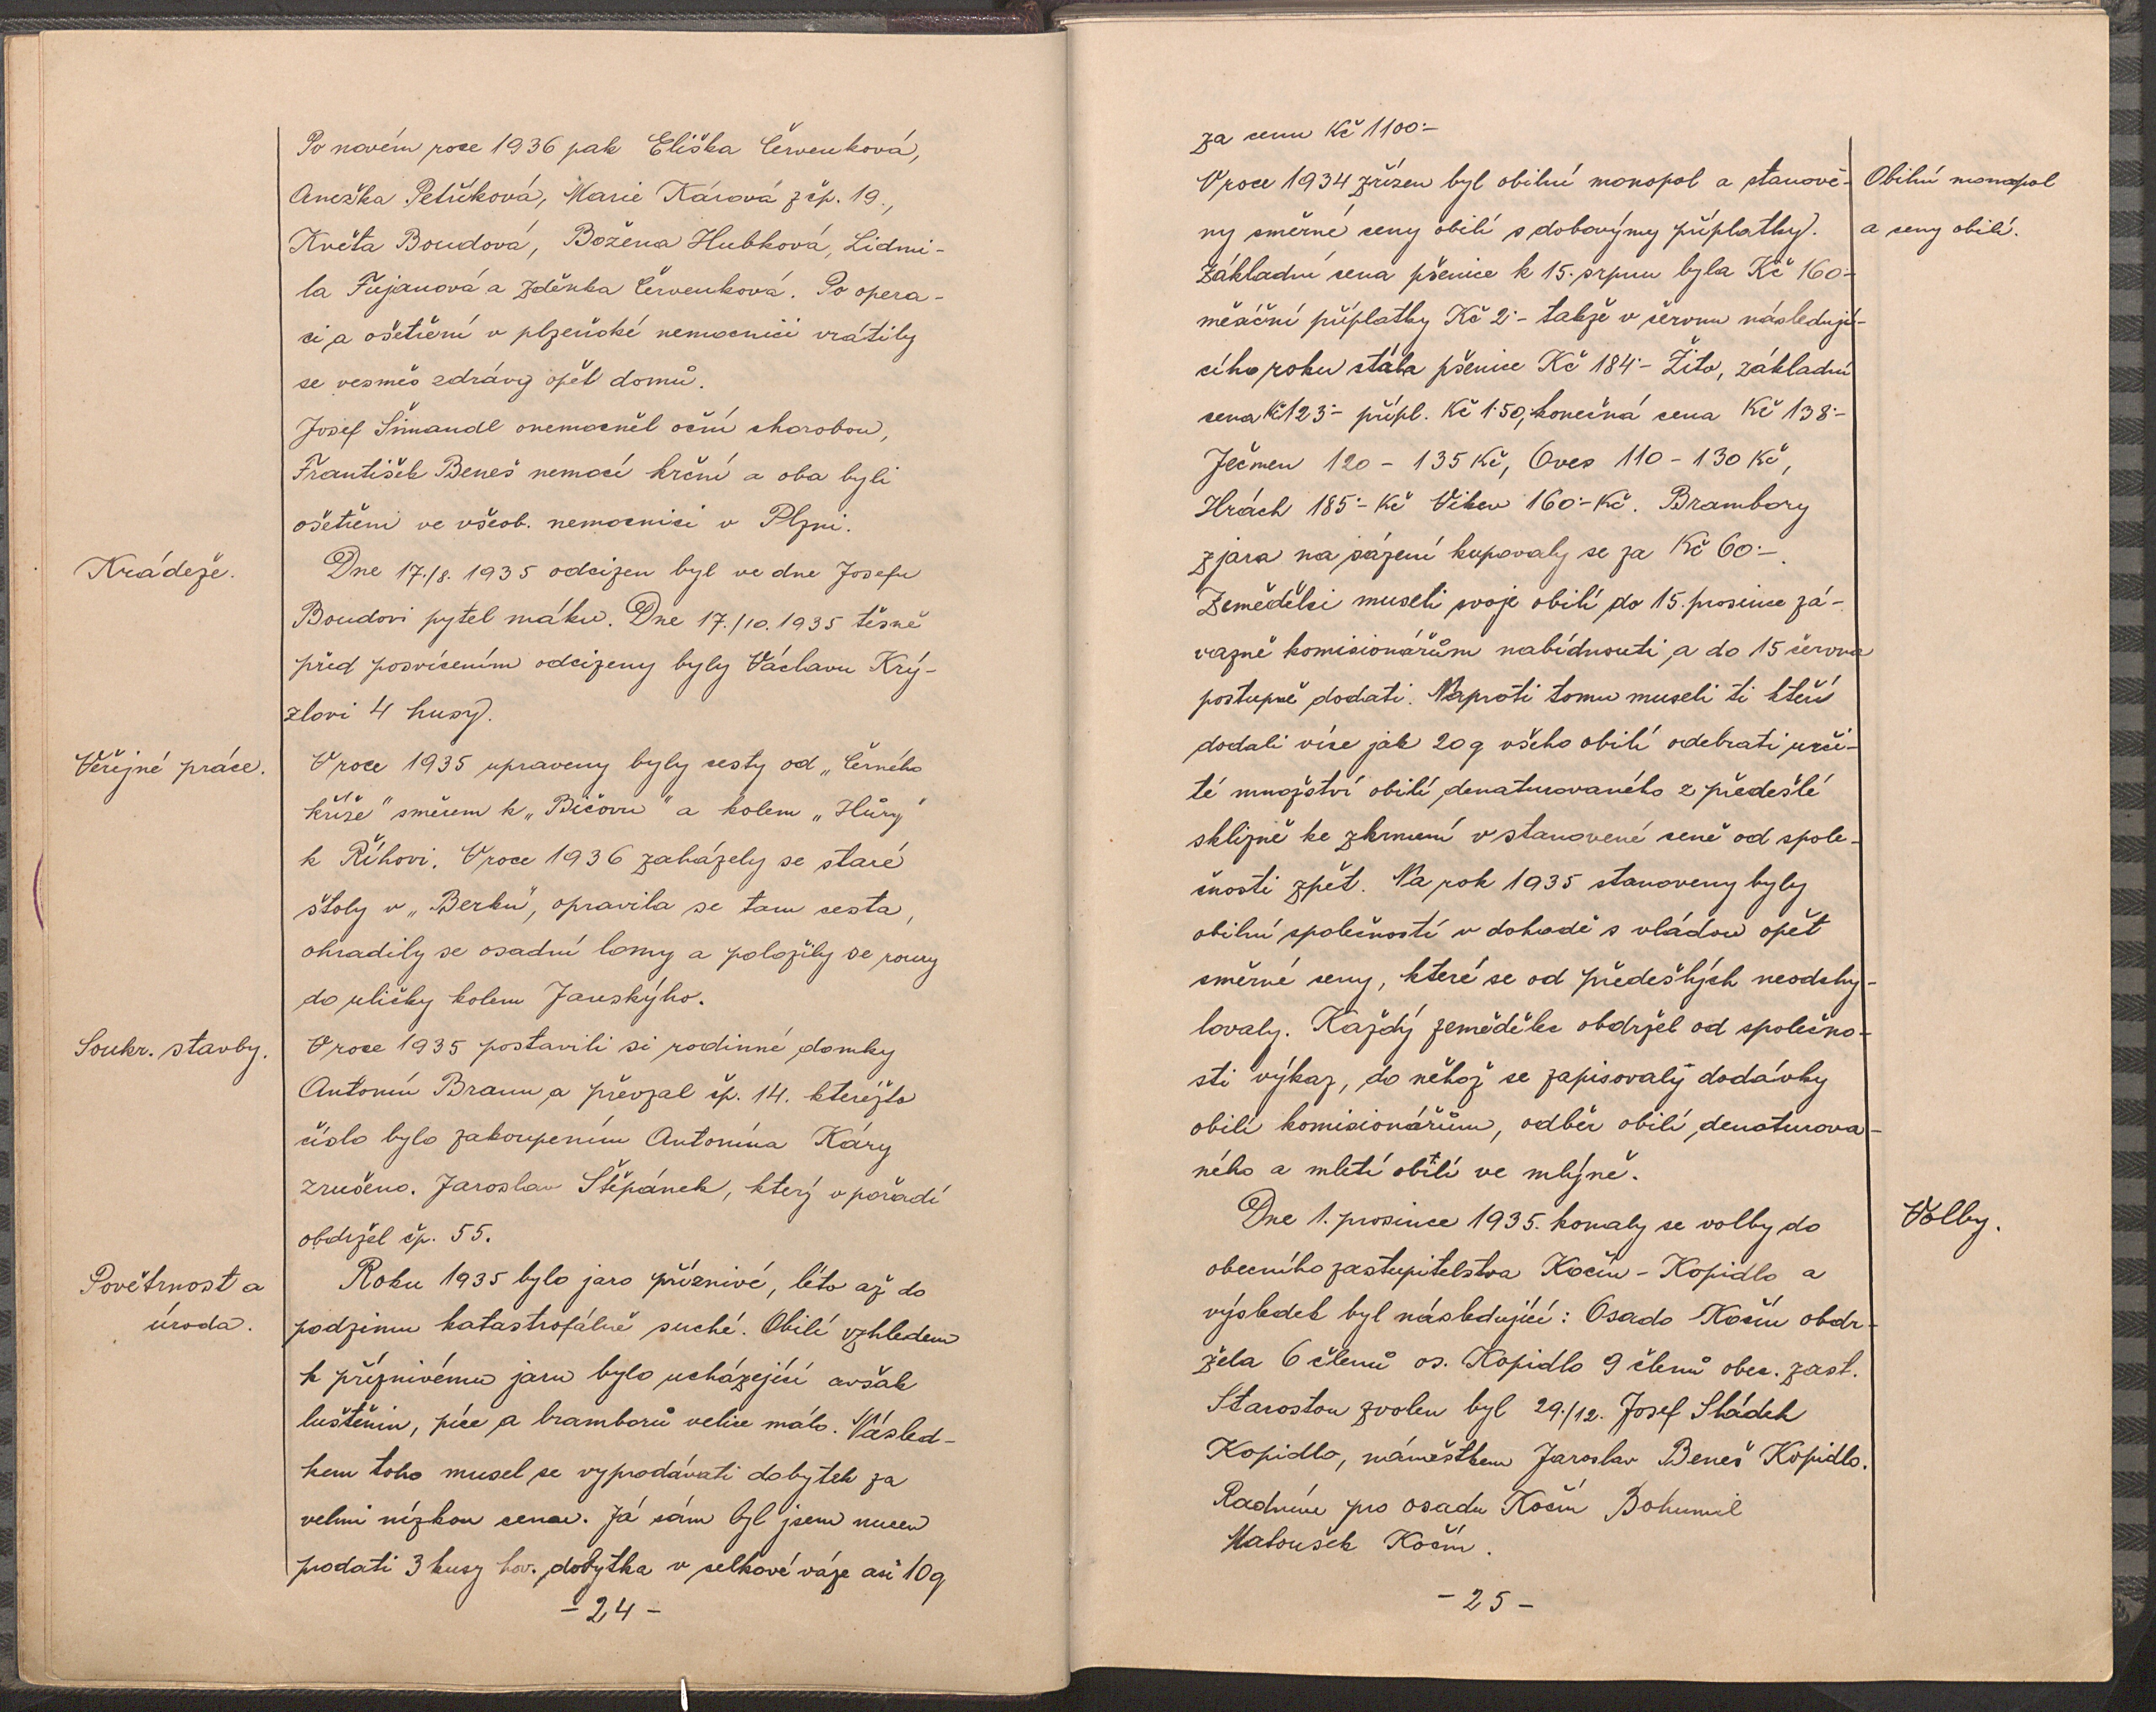 Po novém roce 1936 pak Eliška Červenková,
Anežka Petříková, Marie Kárová z čp. 19.,
Květa Boudová, Božena Hubková, Lidmi-
la Fujanová a Zděnka Červenková. Po opera-
ci a ošetření v plzeňské nemocnici vrátily
se vesměs zdrávy opět domů.
Josef Šmandl onemocněl oční chorobou,
František Beneš nemocí krční a oba byli
ošetřeni ve všeob. nemocnici v Plzni.
Krádeže.
Dne 17./8. 1935 odcizen byl ve dne Josefu
Boudovi pytel máku. Dne 17./10. 1935 těsně
před posvícením odcizeny byly Václavu Krý-
zlovi 4 husy.
Veřejné práce.
V roce 1935 upraveny byly cesty od „Černého
kříže" směrem k „Bíčovu" a kolem „Hůry"
k Říhovi. V roce 1936 zaházely se staré
štoly v „Berku", opravila se tam cesta,
ohradily se osadní lomy a položily se roury
do uličky kolem Janských.
Soukr. stavby.
V roce 1935 postavili si rodinné domky
Antonín Braun a převzal čp. 14. kteréžto
číslo bylo zakoupením Antonína Káry
zrušeno. Jaroslav Štěpánek, který v pořadí
obdržel čp. 55.
Povětrnost a
úroda.
Roku 1935 bylo jaro příznivé, léto až do
podzimu katastrofálně suché. Obilí vzhledem
k příznivému jaru bylo ucházející avšak
luštěnin, píce a bramborů velice málo. Násled-
kem toho musel se vyprodávati dobytek za
velmi nízkou cenu. Já sám byl jsem nucen
prodati 3 kusy hov. dobytka v celkové váze asi 10q
- 24 -
za cenu Kč 1100·-
Obilní monopol
a ceny obilí.
V roce 1934 zřízen byl obilní monopol a stanove-
ny směrné ceny obilí s dobovými příplatky.
Základní cena pšenice k 15. srpnu byla Kč 160·-
měsíční příplatky Kč 2·- takže v červnu následují-
cího roku stála pšenice Kč 184·- Žito, základní
cena Kč 123·- přípl. Kč 1·50, konečná cena Kč 138·-
Ječmen 120 - 135 Kč, Oves 110 - 130 Kč,
Hrách 185·- Kč Vikev 160·- Kč. Brambory
z jara na sázení kupovaly se za Kč 60·-.
Zemědělci museli svoje obilí do 15. prosince zá-
vazně komisionářům nabídnouti a do 15 června
postupně dodati. Naproti tomu museli ti kteří
dodali více jak 20q všeho obilí odebrati urči-
té množství obilí denaturovaného z předešlé
sklizně ke zkrmení v stanovené ceně od spole-
čnosti zpět. Na rok 1935 stanoveny byly
obilní společností v dohodě s vládou opět
směrné ceny, které se od předešlých neodchy-
lovaly. Každý zemědělec obdržel od společno-
sti výkaz, do něhož se zapisovaly dodávky
obilí komisionářům, odběr obilí denaturova-
ného a mletí obilí ve mlýně.
Volby.
Dne 1. prosince 1935. konaly se volby do
obecního zastupitelstva Kočín - Kopidlo a
výsledek byl následující: Osada Kočín obdr-
žela 6 členů os. Kopidlo 9 členů obec. zast.
Starostou zvolen byl 29./12. Josef Sládek
Kopidlo, náměstkem Jaroslav Beneš Kopidlo.
Radním pro osadu Kočín Bohumil
Matoušek Kočín.
- 25 -